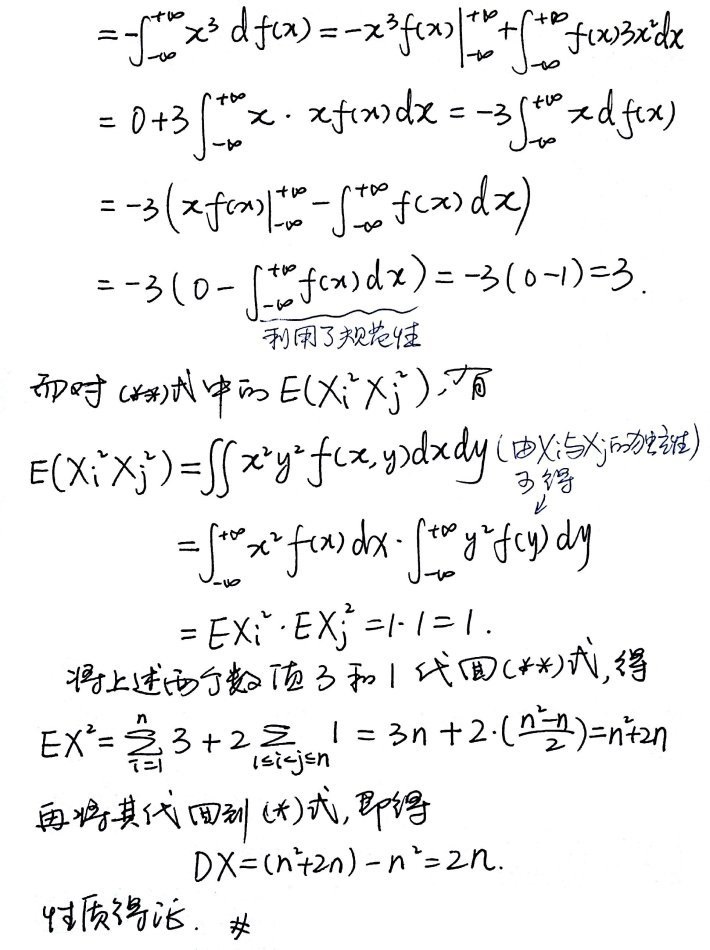 = -∫_{-∞}^{+∞} x³ d f(x) = -x³f(x)|_{-∞}^{+∞} + ∫_{-∞}^{+∞} f(x)3x²dx
= 0+3∫_{-∞}^{+∞} x · xf(x)dx = -3∫_{-∞}^{+∞} x d f(x)
= -3(xf(x)|_{-∞}^{+∞} - ∫_{-∞}^{+∞} f(x) dx)
= -3(0 - ∫_{-∞}^{+∞} f(x)dx) = -3(0-1)=3.
利用了规范性
而对(**)式中的E(Xi²Xj²),有
E(Xi²Xj²)=∬x²y²f(x,y)dxdy (由Xi与Xj的独立性)
可得
= ∫_{-∞}^{+∞} x²f(x)dx · ∫_{-∞}^{+∞} y²f(y)dy
= EXi²·EXj²=1·1=1.
将上述两个数值3和1代回(**)式,得
EX²=∑_{i=1}^{n} 3 + 2∑_{1≤i<j≤n} 1 = 3n + 2·(\frac{n²-n}{2})=n²+2n
再将其代回到(*)式,即得
DX=(n²+2n)-n²=2n.
性质得证. #